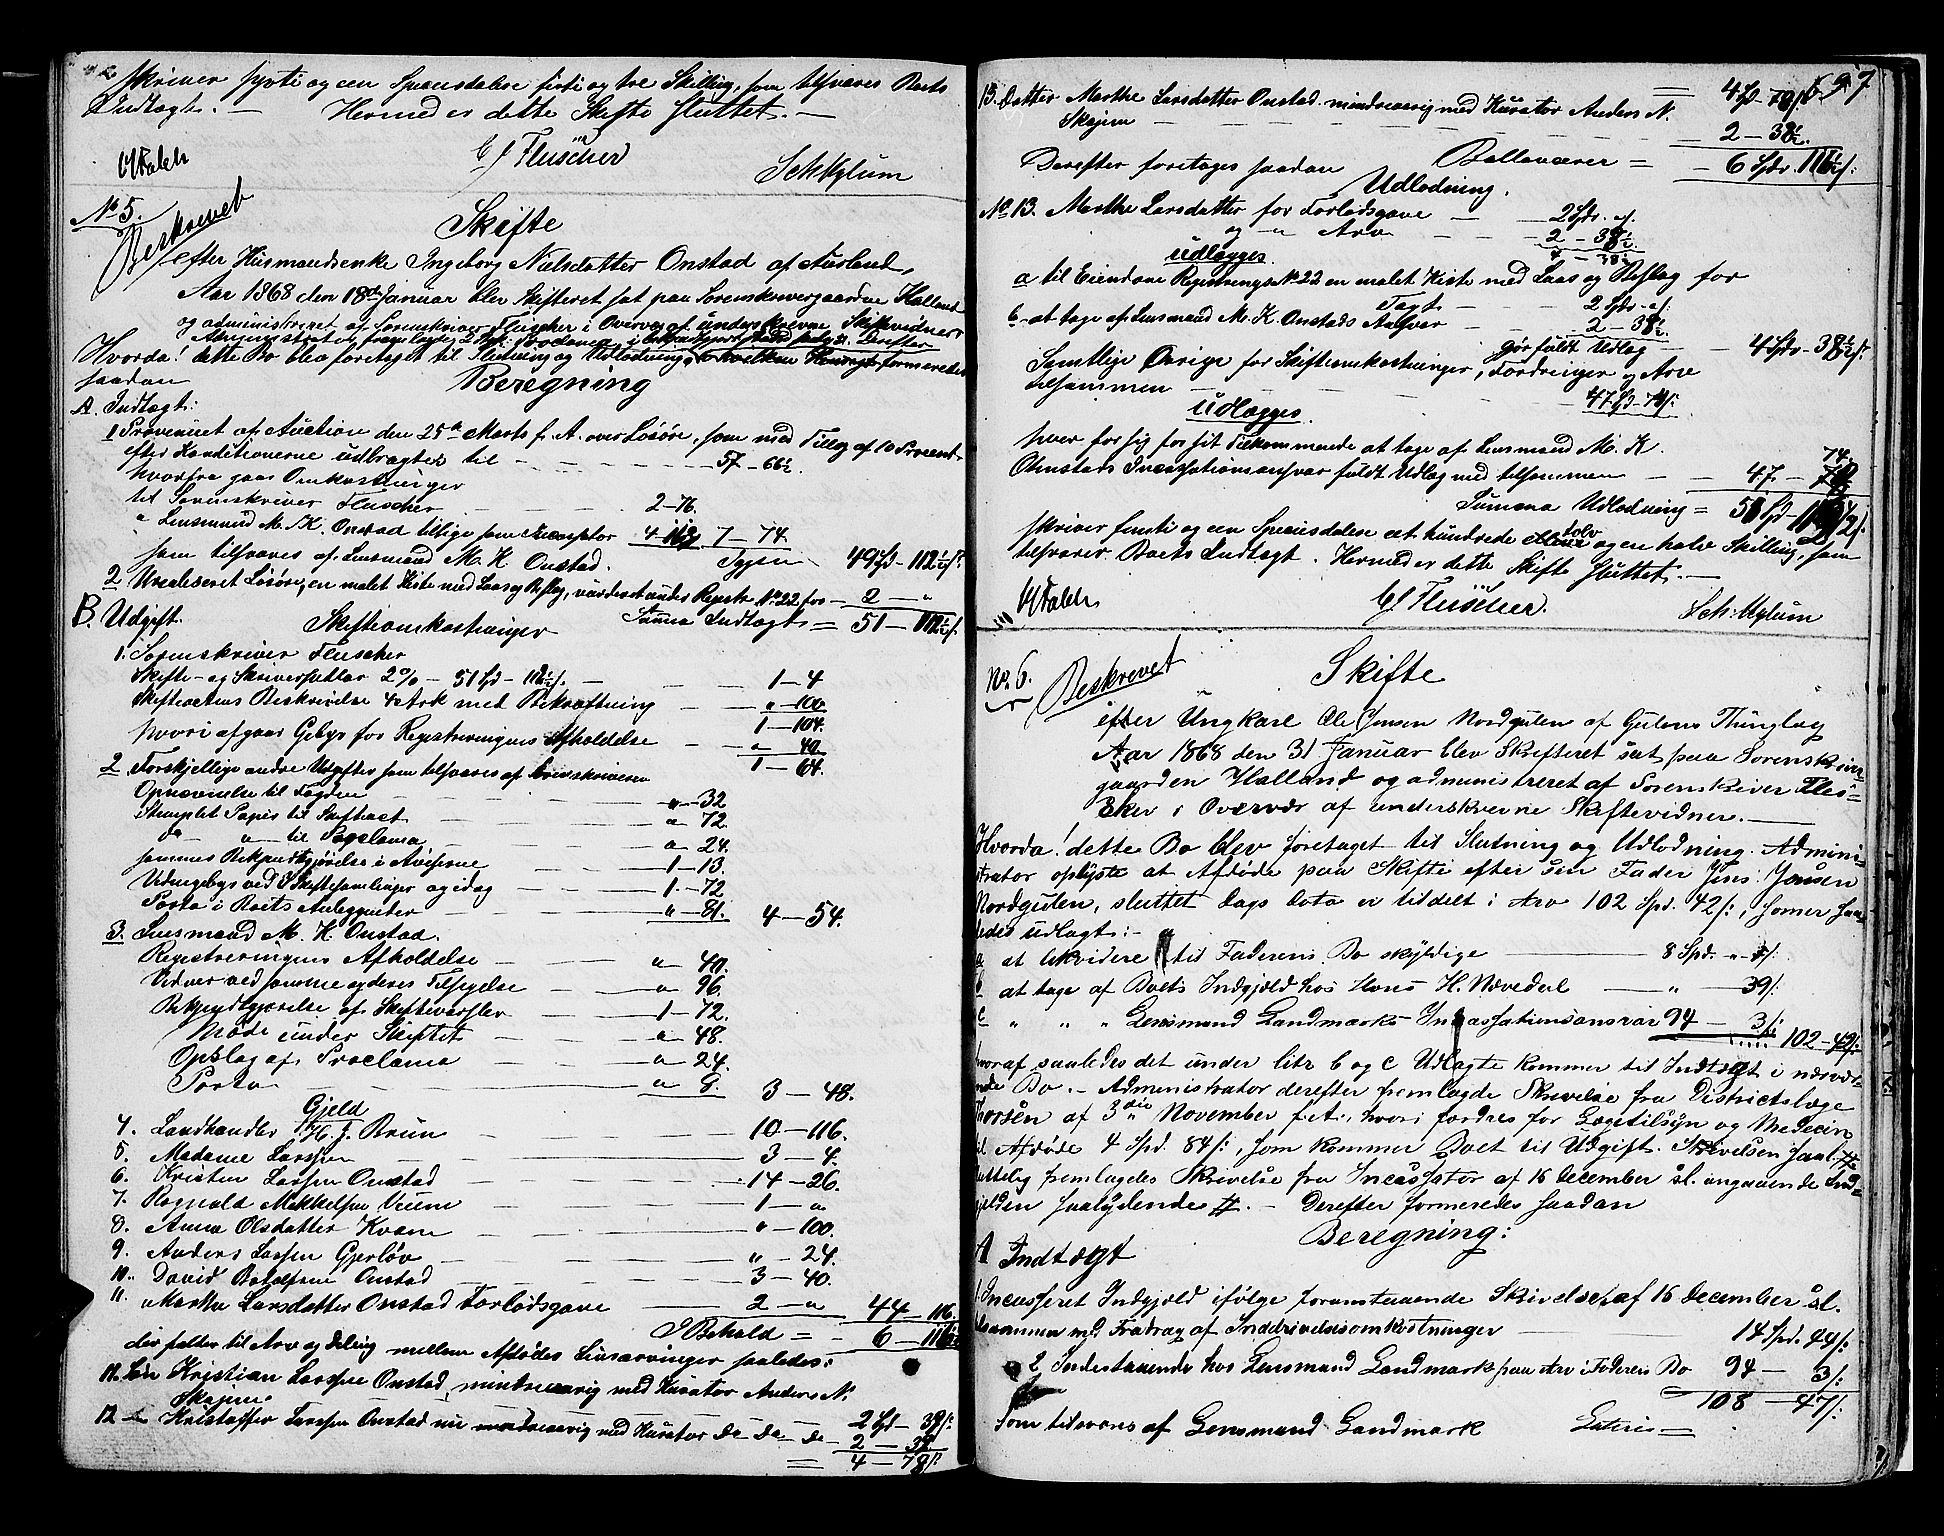 skriver fyrti og een Speciesdaler firti og tre Skilling, som tilsvares Boets
Indtægt. — Hermed er dette Skifte sluttet. —
Fluscher
Sch Kylum
No 5. Beskrevet
Skifte
efter Huusmandsenke Ingeborg Nielsdatter Onstad af Aurland,
Aar 1868 den 18de Januar blev Skifteret sat paa Sorenskrivergaarden Halland
og administreret af Sorenskriver Fluscher i Overvær af underskrevne Skiftevidner
Hvorda! dette Bo blev foretaget til Slutning og Udlodning, formeredes
saadan Beregning
A. Indtægt:
1 Provenuet af Auction den 25de Marts f. A. over Løsøre, som med Tillæg af 10 Procent
efter Konditionerne udbragtes til — 57 – 66½
hvorfra gaar Omkostninger
til Sorenskriver Fluscher — 2 – 76.
" Lensmand M. K. Onstad tillige som Incassator 4 – 118 7 – 74.
som tilsvares af Lensmand M. K. Onstad. Igjen 49 Spd – 112½ s.
2 Urealiseret Løsøre, en malet Kiste med Laas og Beslag, vurderet under Registr. No 22 for — 2 — "
Summa Indtægt = 51 – 112½ s.
B. Udgift. Skifteomkostninger
1. Sorenskriver Fluscher
Skifte- og Skriversportler 2% — 51 Spd – 112½ s. — 1 – 4
Skifteactens Beskrivelse 4 Ark med Bekræftning — " – 100
1 – 104.
hvori afgaar Gebyr for Registreringens Afholdelse — " – 40.
1 – 64.
2 Forskjellige andre Udgifter som tilsvares af Sorenskriveren
Opnævnelse til Fogden — " – 32
Stemplet Papir til Skifteact — " – 72
do " til Proclama — " – 24.
sammes Bekjendtgjørelse i Aviserne — 1 – 13.
Vidnegebyr ved Skiftesamlinger og idag — 1 – 72
Porto i Boets Anliggender — " – 81. 4 – 54.
3. Lensmand M. K. Onstad.
Registreringens Afholdelse — " – 40.
Vidner ved samme og deres Tilsigelse — " – 96.
Bekjendtgjørelse af Skiftevarsler — 1 – 72.
Møde under Skiftet — " – 48.
Opslag af Proclama — " – 24.
Porto — " – 8. 3 – 48.
Gjeld
4. Landhandler H. J. Brun — 10 – 116.
5. Madame Larssen — 3 – 4.
6. Kristen Larssen Onstad — 14 – 26.
7. Ragnald Mikkelsen Veum — 1 – "
8. Anna Olsdatter Kvam — " – 100.
9. Anders Larssen Gjerløv — " – 24.
10. David Botolfsen Onstad — 3 – 40.
11. Marthe Larsdatter Onstad Forlodsgave — 2 – " 44 – 116.
I Behold = 6 – 116½
der falder til Arv og Deling mellem Afdødes Livsarvinger saaledes:
11. Søn Kristian Larssen Onstad, mindreaarig med Kurator Anders N.
Skajem — 2 Spd – 39 s.
12 — Kristoffer Larssen Onstad mindreaarig med Kurator Do Do — 2 – 39
= 4 – 78 s.
597
4 Spd – 78 s.
13. Datter Marthe Larsdatter Onstad mindreaarig med Kurator Anders N.
Skajem — 2 – 38½
Balancerer = 6 Spd. 116½ s.
Derefter foretages saadan
Udlodning.
No 13. Marthe Larsdatter for Forlodsgave — 2 Spd. " s.
og " Arv — 2 – 38½
4 – 38½
udlægges
a til Eiendom Registrerings No 22 en malet Kiste med Laas og Beslag for
Taxt — 2 Spd – " s.
b at tage af Lensmand M. K. Onstads Ansvar — 2 – 38½
gjør fuldt Udlæg — 4 Spd – 38½ s.
Samtlige Øvrige for Skifteomkostninger, Fordringer og Arv
tilsammen — 47 Spd – 74 s.
udlægges
hver for sig for sit Tilkommende at tage af Lensmand M. K.
Onstads Incassationsansvar fuldt Udlæg med tilsammen — 47 – 74
Summa Udlodning = 51 Spd – 112½ s.
skriver femti og een Speciesdaler et hundrede tolv og en halv Skilling, som
tilsvarer Boets Indtægt. Hermed er dette Skifte sluttet. —
Flüscher.
Sch: Kylum
No. 6. Beskrevet
Skifte
efter Ungkarl Ole Jensen Nordgulen af Gulens Thinglag
Aar 1868 den 31 Januar blev Skifteret sat paa Sorenskriver-
gaarden Halland og administreret af Sorenskriver Flüs-
cher i Overvær af underskrevne Skiftevidner. —
Hvorda! dette Bo blev foretaget til Slutning og Udlodning. Admini-
strator oplyste at Afdøde paa Skifte efter sin Fader Jens Jensen
Nordgulen, sluttet Dags Dato er tildelt i Arv 102 Spd. 42 s., som er saa-
ledes udlagt: —
a at likvidere til Faderens Bo skyldige — 8 Spd. " s.
b at tage af Boets Indgjæld hos Hans H. Nævedal — " – 39 s.
c " " " Lensmand Landmarks Incassationsansvar 94 – 3 s. 102 – 42 s.
hvoraf saaledes det under litr b og c Udlagte kommer til Indtægt i nærvæ-
nde Bo. — Administrator derefter fremlagde Skrivelse fra Districtslæge
Thorsen af 3die November f. A., hvori fordres for Lægetilsyn og Medicin
til Afdøde 4 Spd. 84 s., som kommer Boet til Udgift. Skrivelsen saal. #
luttelig fremlagdes Skrivelse fra Incassator af 16 December sl. angaaende Ind-
gjelden saalydende #. — Derefter formeredes saadan
Beregning:
A Indtægt
1 Incasseret Indgjæld ifølge foranstaaende Skrivelse af 16 December sl.
tilsammen med Fradrag af Inddrivelsesomkostninger — 14 Spd. 44 s.
2 Indestaaende hos Lensmand Landmark paa Arv i Faderens Bo 94 – 3 s.
108 – 47 s.
som tilsvares af Lensmand Landmark Lateris =